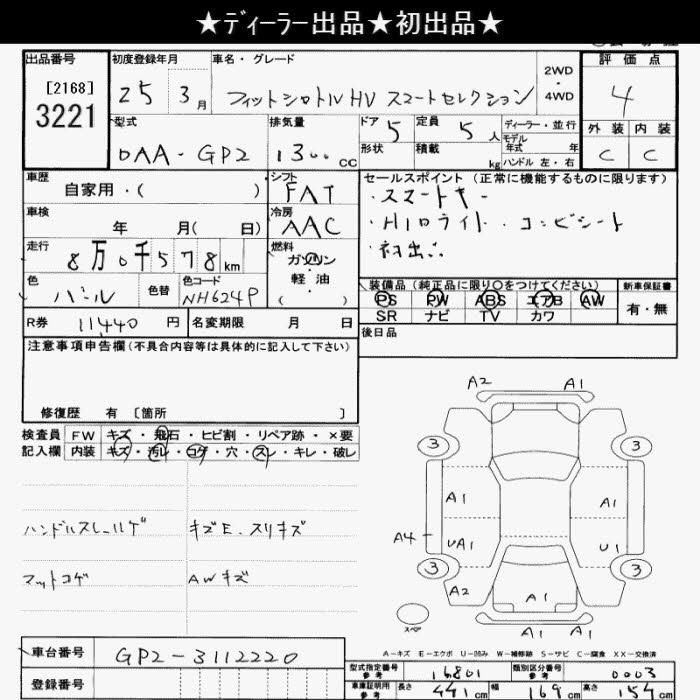 ★ディーラー出品★初出品★
出品番号
[2168]
3221
初度登録年月
25 3月
車名・グレード
フィットシャトルHV スマートセレクション
2WD
4WD
評価点
4
外装 内装
C C
型式
DAA-GP2
排気量
1300 CC
ドア 5
形状
定員 5人
積載 kg
ディーラー・並行
モデル年式 年
ハンドル 左・右
車歴
自家用・( )
シフト
FAT
車検
年 月( 日)
冷房
AAC
走行
8万0千578km
燃料
ガソリン
軽油
( )
色
パール
色替
色コード
NH624P
R券 11440 円
名変期限 月 日
セールスポイント(正常に機能するものに限ります)
・スマートキー
・HIDライト・コンビシート
・初出品
装備品(純正品に限り○をつけてください)
PS PW ABS エアB AW
SR ナビ TV カワ
新車保証書
有・無
後日品
注意事項申告欄(不具合内容等は具体的に記入して下さい)
修復歴 有 [箇所 ]
検査員記入欄
FW キズ・飛石・ヒビ割・リペア跡・×要
内装 キズ・汚レ・コゲ・穴・スレ・キレ・破レ
ハンドルスレ・ハゲ
キズE.スリキズ
マットコゲ
AWキズ
A2 A1
3 3
A1 A1
A4 UA1 U1
3 3
A2 A1
A1 A1
スペア
A−キズ E−エクボ U−凹み W−補修跡 S−サビ C−腐食 XX−交換済
車台番号
GP2-3112220
登録番号
型式指定番号 参考 16801
類別区分番号 参考 0003
車庫証明用 参考
長さ 441cm 幅 169cm 高さ 154cm